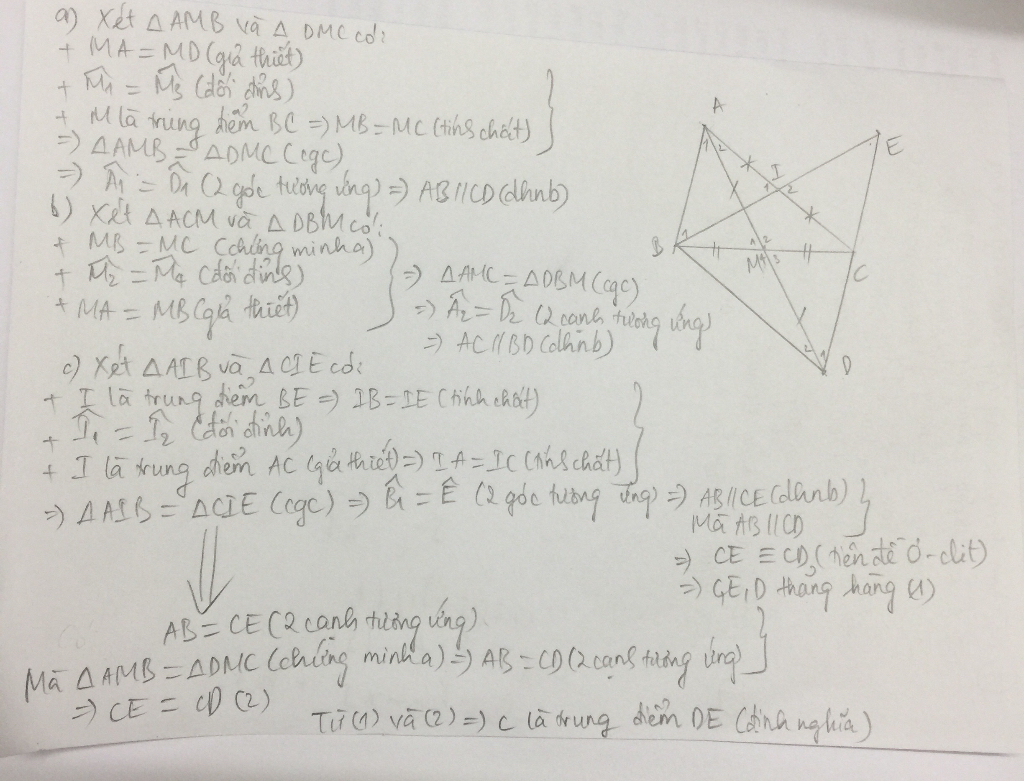 a) Xét △AMB và △DMC có:
+ MA = MD (giả thiết)
+ M̂1 = M̂3 (đối đỉnh)
+ M là trung điểm BC => MB = MC (tính chất)
=> △AMB = △DMC (cgc)
=> Â1 = D̂1 (2 góc tương ứng) => AB // CD (dhnb)
b) Xét △ACM và △DBM có:
+ MB = MC (chứng minh a)
+ M̂2 = M̂4 (đối đỉnh)
+ MA = MB (giả thiết)
=> △AMC = △DBM (cgc)
=> Â2 = D̂2 (2 cạnh tương ứng)
=> AC // BD (dhnb)
c) Xét △AIB và △CIE có:
+ I là trung điểm BE => IB = IE (tính chất)
+ Î1 = Î2 (đối đỉnh)
+ I là trung điểm AC (giả thiết) => IA = IC (tính chất)
=> △AIB = △CIE (cgc) => B̂1 = Ê (2 góc tương ứng) => AB // CE (dhnb)
Mà AB // CD
=> CE ≡ CD (tiên đề Ơ-clit)
=> C,E,D thẳng hàng (1)
AB = CE (2 cạnh tương ứng)
Mà △AMB = △DMC (chứng minh a) => AB = CD (2 cạnh tương ứng)
=> CE = CD (2)
Từ (1) và (2) => C là trung điểm DE (định nghĩa)
A
1 2
E
I
1 2
B
1
1 2
M 4 3
C
2 1
D